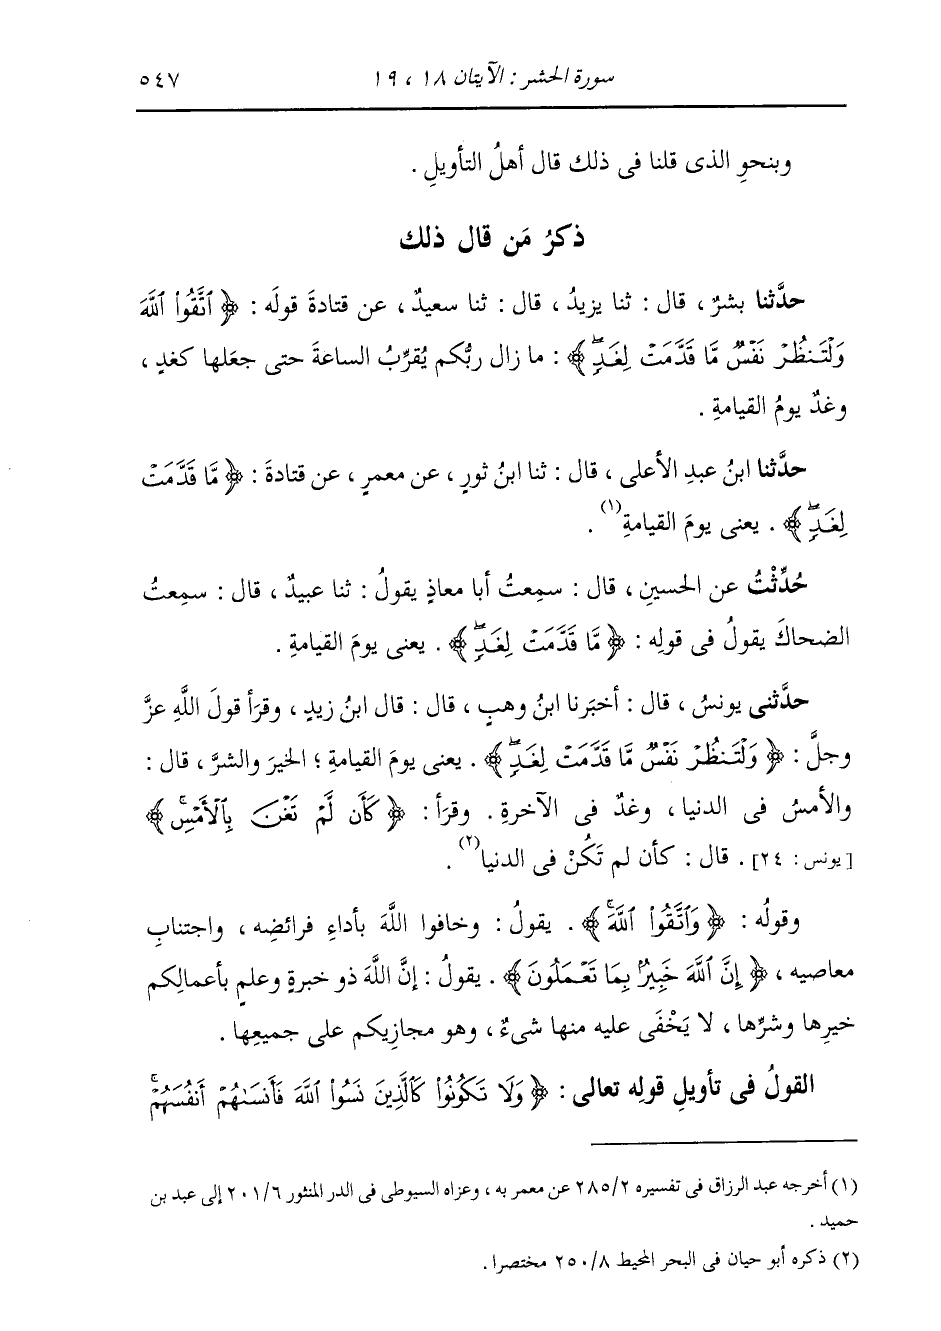 سورة الحشر : الآيتان ١٨ ، ١٩ ٥٤٧
وبنحوِ الذى قلنا فى ذلك قال أهلُ التأويلِ .
ذكرُ مَن قال ذلك
حدَّثنا بشرٌ ، قال : ثنا يزيدُ ، قال : ثنا سعيدٌ ، عن قتادةَ قولَه : ﴿ ٱتَّقُوا۟ ٱللَّهَ
وَلْتَنظُرْ نَفْسٌ مَّا قَدَّمَتْ لِغَدٍۖ ﴾ : ما زال ربُّكم يُقرِّبُ الساعةَ حتى جعَلها كغدٍ ،
وغدٌ يومُ القيامةِ .
حدَّثنا ابنُ عبدِ الأعلى ، قال : ثنا ابنُ ثورٍ ، عن معمرٍ ، عن قتادةَ : ﴿ مَّا قَدَّمَتْ
لِغَدٍۖ ﴾ . يعنى يومَ القيامةِ(١) .
حُدِّثْتُ عن الحسينِ ، قال : سمِعتُ أبا معاذٍ يقولُ : ثنا عبيدٌ ، قال : سمِعتُ
الضحاكَ يقولُ فى قولِه : ﴿ مَّا قَدَّمَتْ لِغَدٍۖ ﴾ . يعنى يومَ القيامةِ .
حدَّثنى يونسُ ، قال : أخبَرنا ابنُ وهبٍ ، قال : قال ابنُ زيدٍ ، وقرَأ قولَ اللَّهِ عزَّ
وجلَّ : ﴿ وَلْتَنظُرْ نَفْسٌ مَّا قَدَّمَتْ لِغَدٍۖ ﴾ . يعنى يومَ القيامةِ ؛ الخيرَ والشرَّ ، قال :
والأمسُ فى الدنيا ، وغدٌ فى الآخرةِ . وقرَأ : ﴿ كَأَن لَّمْ تَغْنَ بِٱلْأَمْسِۚ ﴾
[ يونس : ٢٤ ] . قال : كأن لم تَكُنْ فى الدنيا(٢) .
وقولُه : ﴿ وَٱتَّقُوا۟ ٱللَّهَۚ ﴾ . يقولُ : وخافوا اللَّهَ بأداءِ فرائضِه ، واجتنابِ
معاصيه ، ﴿ إِنَّ ٱللَّهَ خَبِيرٌۢ بِمَا تَعْمَلُونَ ﴾ . يقولُ : إنَّ اللَّهَ ذو خبرةٍ وعلمٍ بأعمالِكم
خيرِها وشرِّها ، لا يَخْفَى عليه منها شىءٌ ، وهو مجازِيكم على جميعِها .
القولُ فى تأويلِ قولِه تعالى : ﴿ وَلَا تَكُونُوا۟ كَٱلَّذِينَ نَسُوا۟ ٱللَّهَ فَأَنسَىٰهُمْ أَنفُسَهُمْۚ
(١) أخرجه عبد الرزاق فى تفسيره ٢٨٥/٢ عن معمر به ، وعزاه السيوطى فى الدر المنثور ٢٠١/٦ إلى عبد بن
حميد .
(٢) ذكره أبو حيان فى البحر المحيط ٢٥٠/٨ مختصرا .